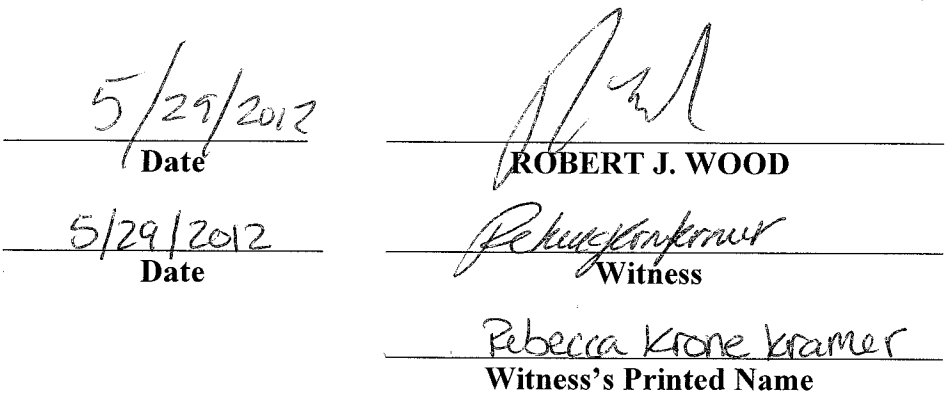 5/29/2012
Date ROBERT J. WOOD
5/29/2012
Date Witness
Rebecca Krone Kramer
Witness's Printed Name